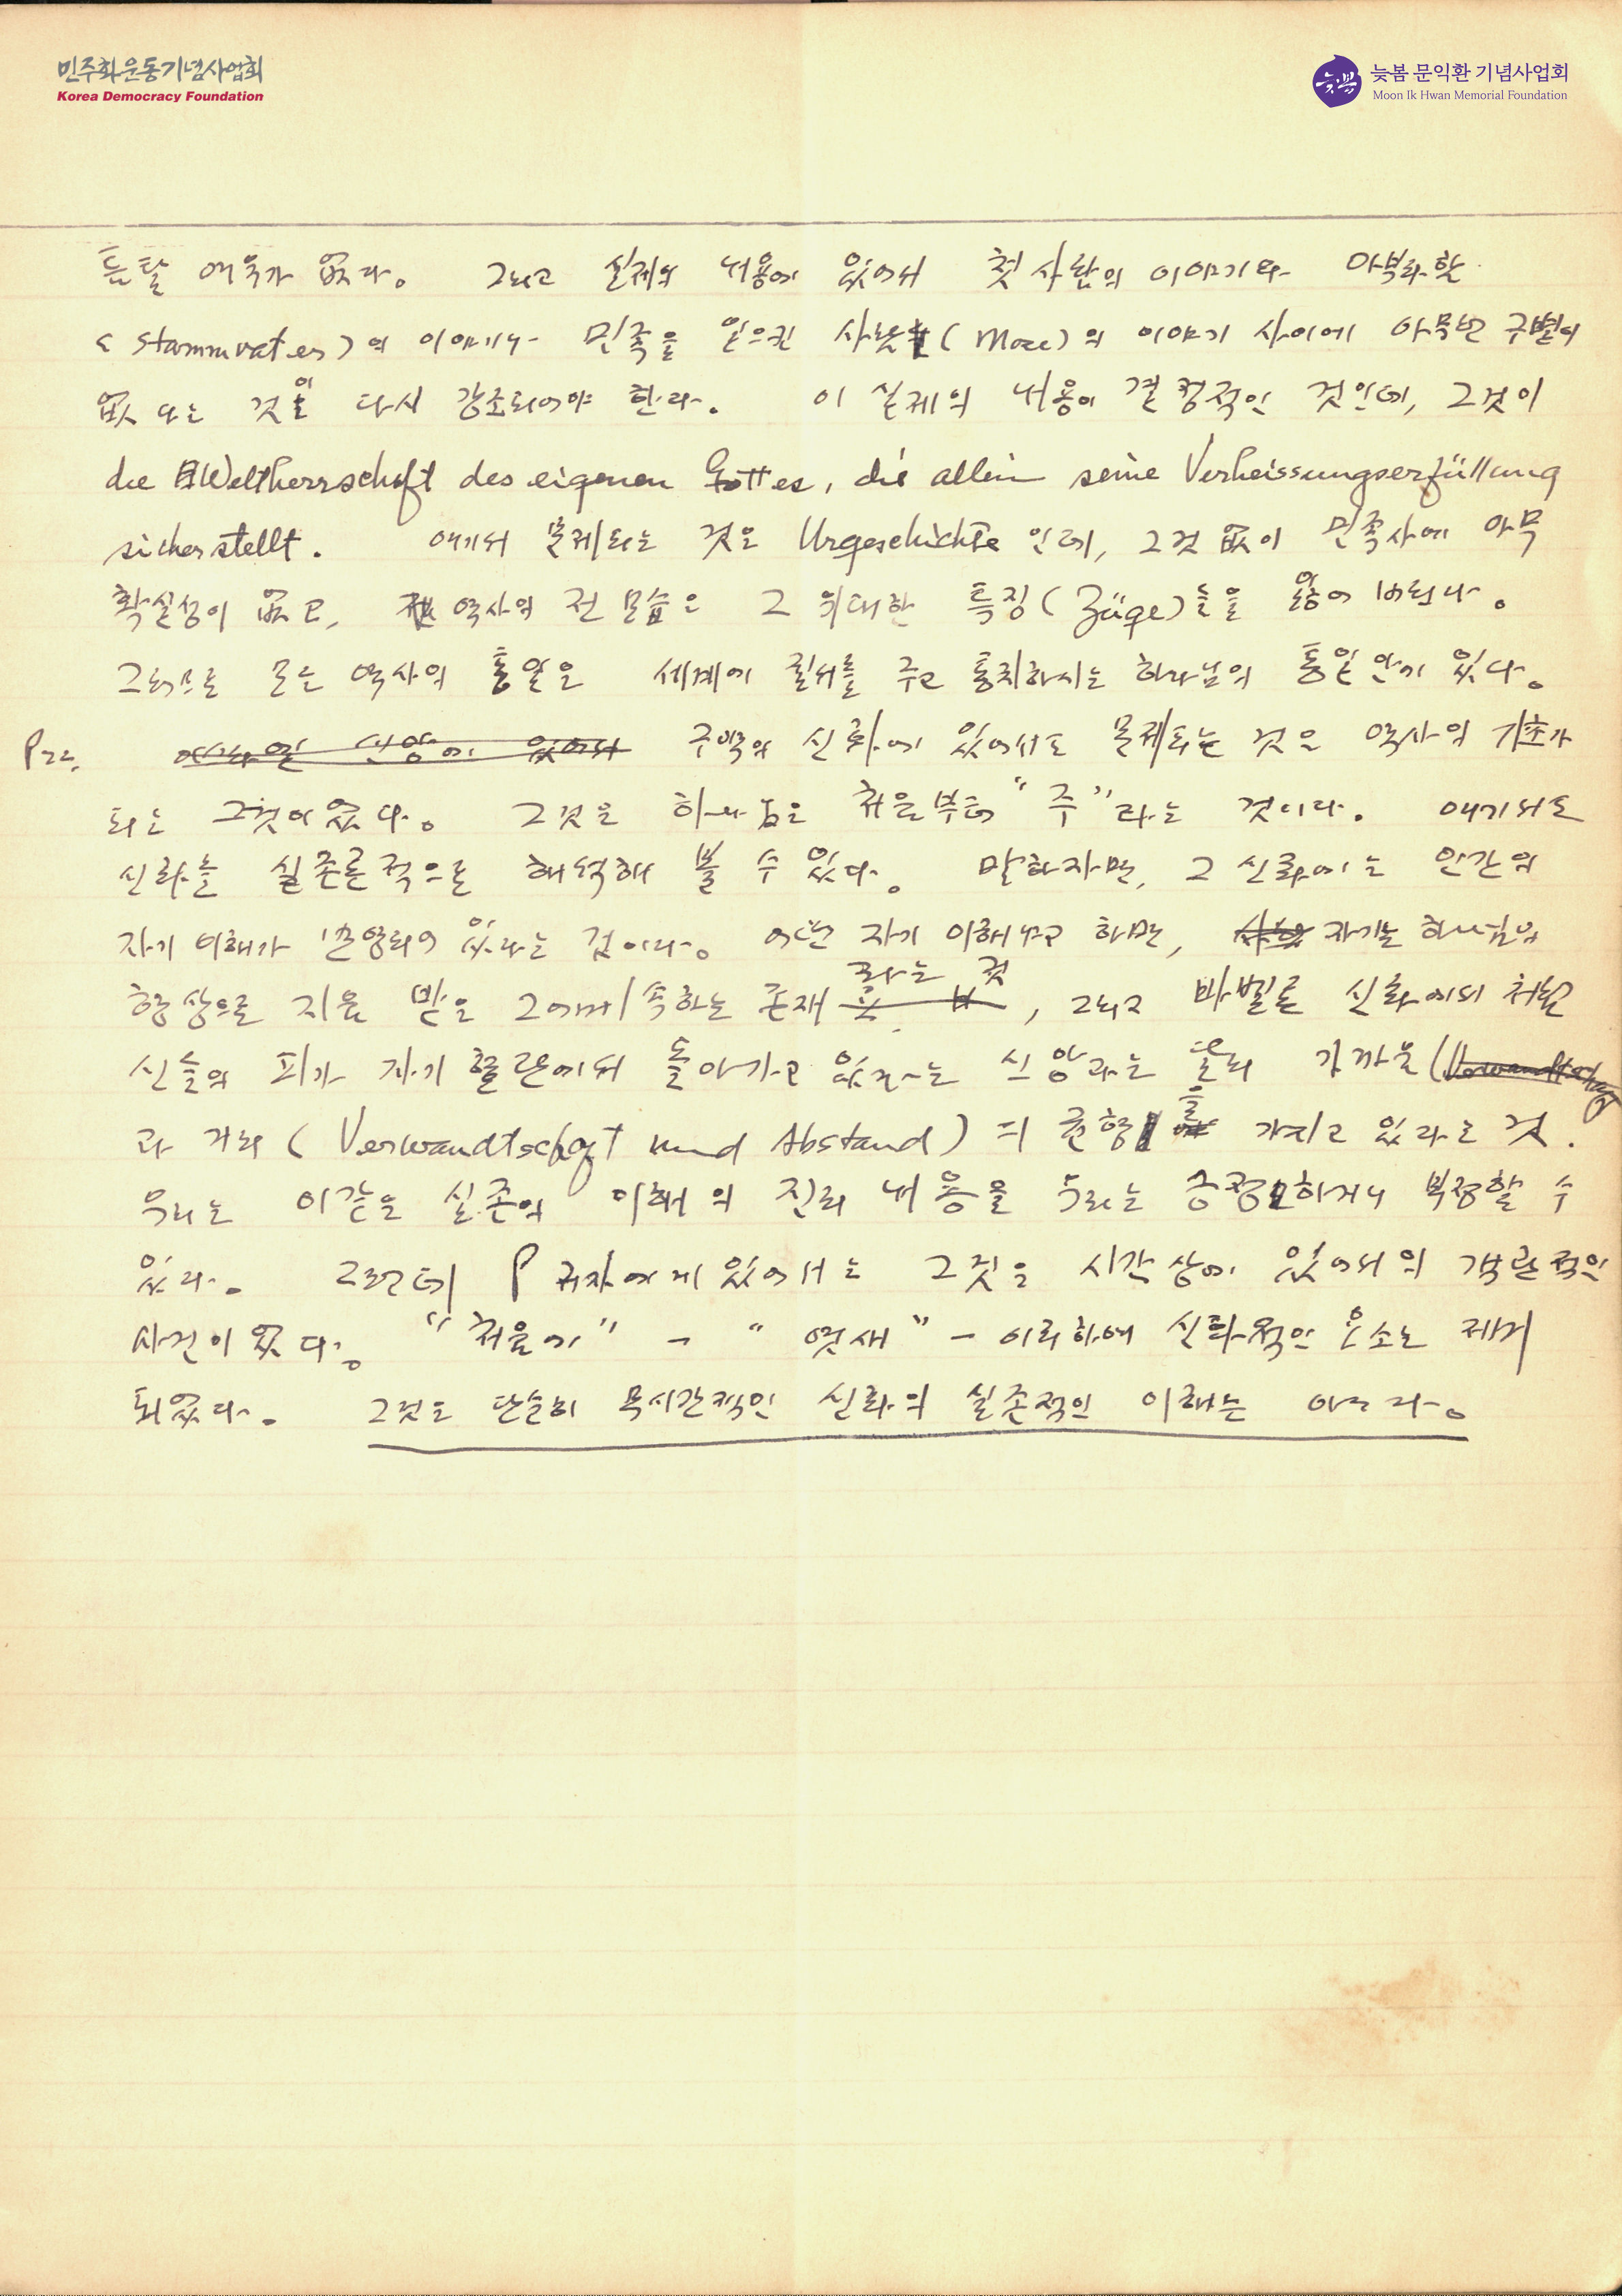 민주화운동기념사업회
Korea Democracy Foundation
늦봄
늦봄 문익환 기념사업회
Moon Ik Hwan Memorial Foundation
여유가 없다. 그리고 실제의 내용에 있어서 첫 사람의 이야기와 아브라함
(Stammvater)의 이야기나 민족을 일으킨 (Mose)의 이야기 사이에 아무런 구별이
없다는 것이 다시 강조되어야 한다. 이 실제의 내용이 결정적인 것인데, 그것이
die Weltherrschaft des eigenen Gottes, die allein seine Verheissungserfüllung
sicherstellt. 여기서 문제되는 것은 Urgeschichte 인데, 그것 없이 민족사에 아무
확실성이 없고, 역사의 전 모습은 그 위대한 특징(Züge)들을 잃어 버린다.
그러므로 모든 역사의 통일은 세계에 질서를 주고 통치하시는 하나님의 통일 안에 있다.
P 22. 구약의 신화에 있어서도 문제되는 것은 역사의 기초가
되는 그것이었다. 그것은 하나님은 처음부터 "주"라는 것이다. 여기서도
신화를 실존론적으로 해석해 볼 수 있다. 말하자면, 그 신화에는 인간의
자기 이해가 반영되어 있다는 것이다. 어떤 자기 이해냐고 하면, 자기는 하나님의
형상으로 지음 받은 그에게 속하는 존재라는 것, 그리고 바벨론 신화에서 처럼
신들의 피가 자기 혈관에서 돌아가고 있다는 신앙과는 달리 가까움
과 거리 (Verwandtschaft und Abstand)의 균형을 가지고 있다는 것.
우리는 이같은 실존의 이해의 진리 내용을 우리는 긍정하거나 부정할 수
있다. 그런데 P 기자에게 있어서는 그것은 시간상에 있어서의 객관적인
사건이었다. "처음에" – "엿새" – 이리하여 신화적인 요소는 제거
되었다. 그것도 단순히 무시간적인 신화의 실존적인 이해는 아니다.